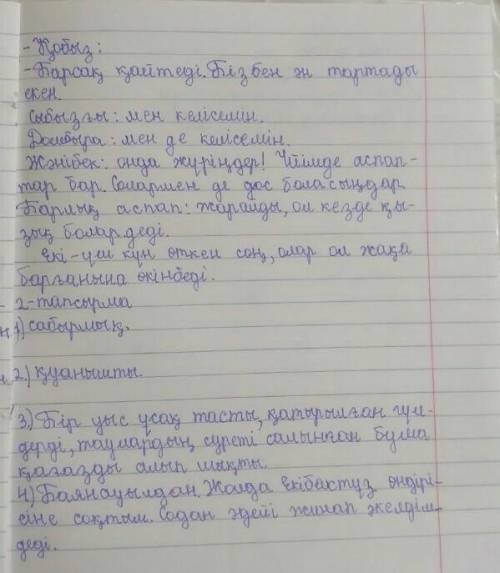 - Қобыз:
- Барсақ қайтеді. Бізбен ән тартады
екен.
Сыбызғы: мен келісемін.
Домбыра: мен де келісемін.
Жәнібек: онда жүріңдер! Үйімде аспап-
тар бар. Солармен де дос боласыңдар
Барлық аспап: жарайды, ол кезде қы-
зық болар деді.
Екі-үш күн өткен соң, олар ол жаққа
барғанына өкінбеді.
2-тапсырма
1) сабырлық.
2.) қуанышты.
3.) Бір уыс ұсақ тасты, қатырылған гүл-
дерді, таулардың суреті салынған бума
қағазды алып шықты.
4) Баянауылдан. Жолда Екібастұз өндірі-
сіне соқтым. Содан әдейі жинап әкелдім
деді.